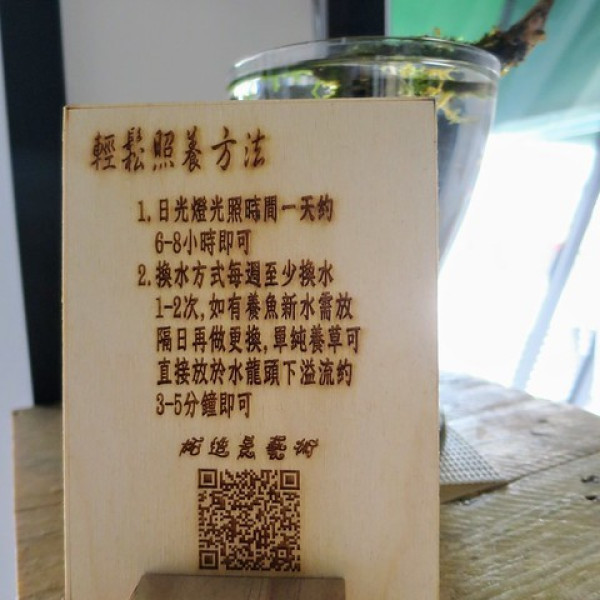 輕鬆照養方法
1.日光燈光照時間一天約
6-8小時即可
2.換水方式每週至少換水
1-2次,如有養魚新水需放
隔日再做更換,單純養草可
直接放於水龍頭下溢流約
3-5分鐘即可
造景藝術